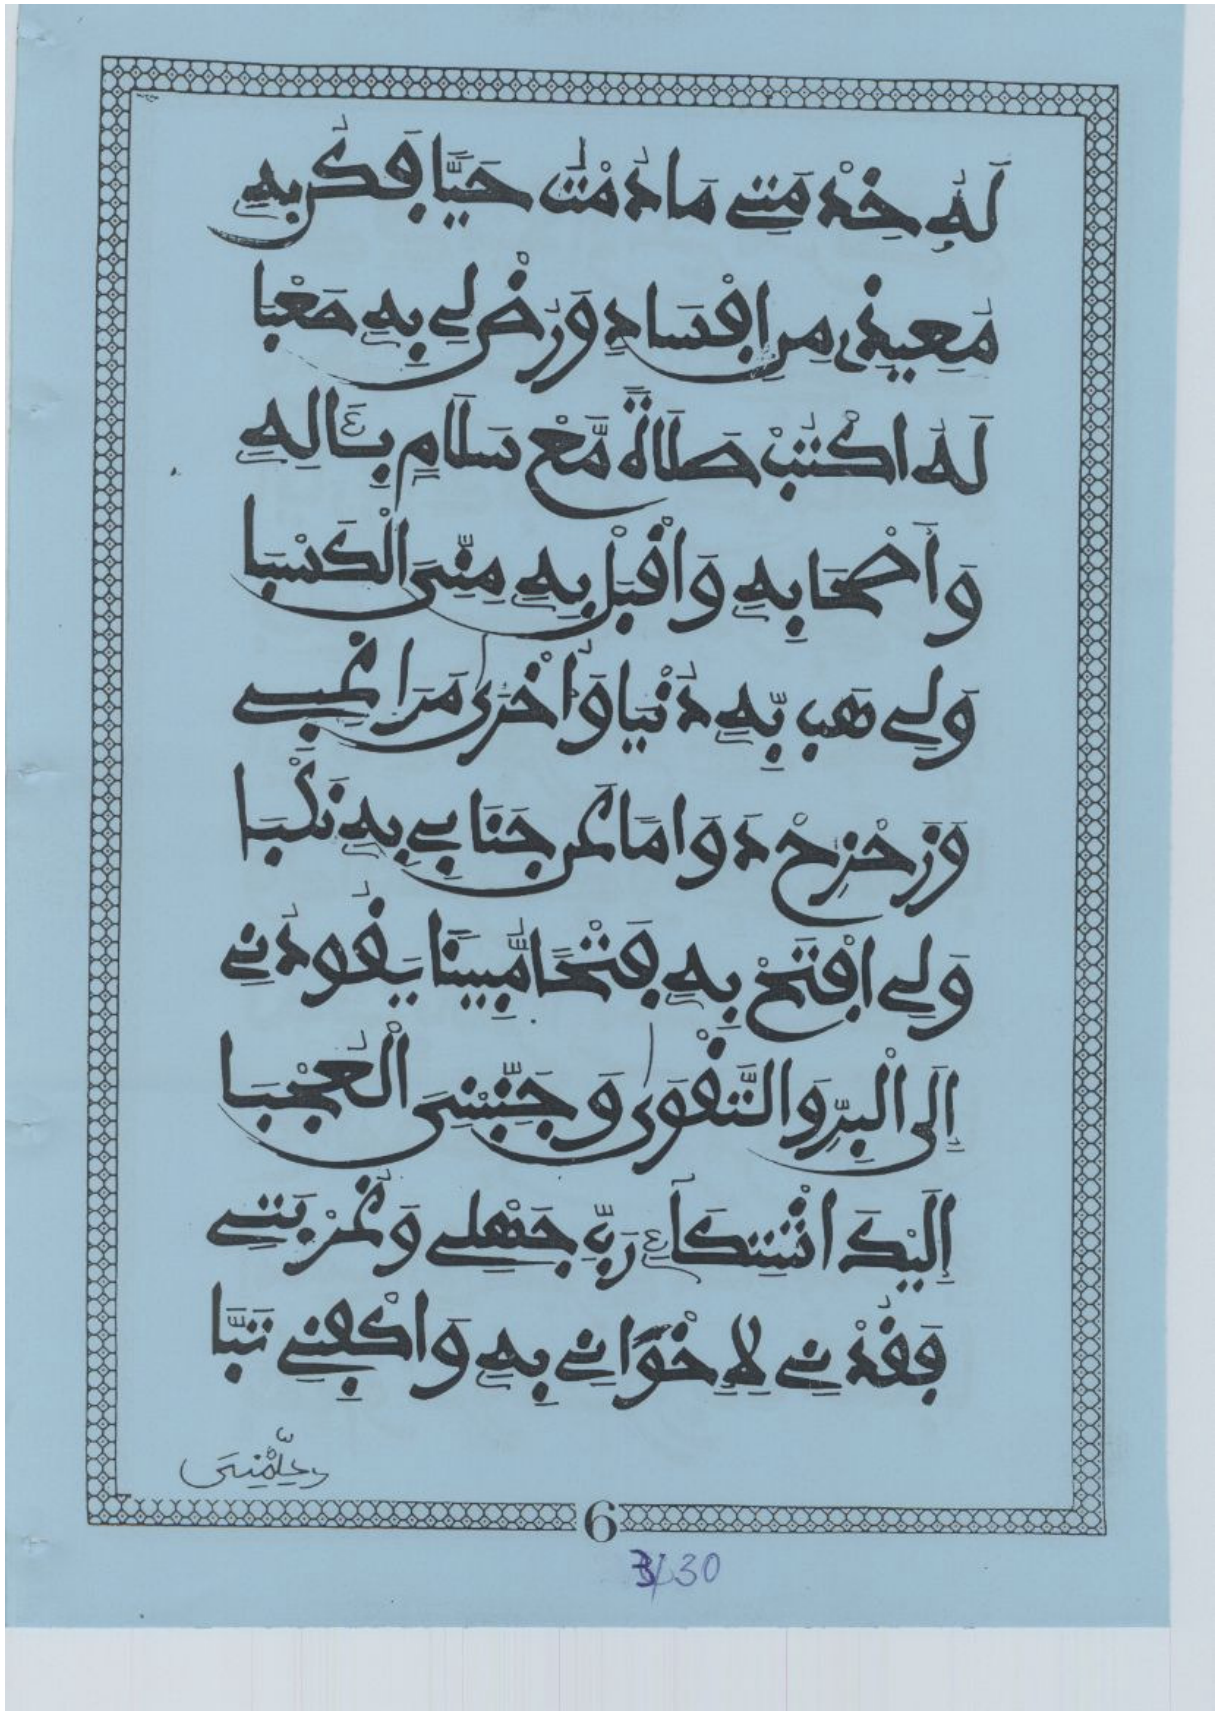 لَهُ خِدْمَتِي مَا دُمْتُ حَيًّا فَكُن بِهِ
مُعِيذِي مِنِ افْسَادٍ وَرُضْ لِي بِهِ صَعْبَا
لَهُ اكْتُبْ صَلَاةً مَّعْ سَلَامٍ بِـَٔالِهِ
وَأَصْحَابِهِ وَاقْبَلْ بِهِ مِنِّيَ الْكَسْبَا
وَلِي هَب بِّهِ دُنْيَا وَأُخْرَى مَرَاغِبِي
وَزَحْزِحْ دَوَامًا عَن جَنَابِي بِهِ نَكْبَا
وَلِي افْتَحْ بِهِ فَتْحًا مُّبِينًا يَقُودُنِي
إِلَى الْبِرِّ وَالتَّقْوَى وَجَنِّبْنِيَ الْعُجْبَا
إِلَيْكَ اشْتِكَاءِي رَبِّ جَهْلِي وَغُرْبَتِي
فَقُدْنِي لِإِخْوَانِي بِهِ وَاكْفِنِي تَبَّا
وعلِّمْنِيَ
6
3/30